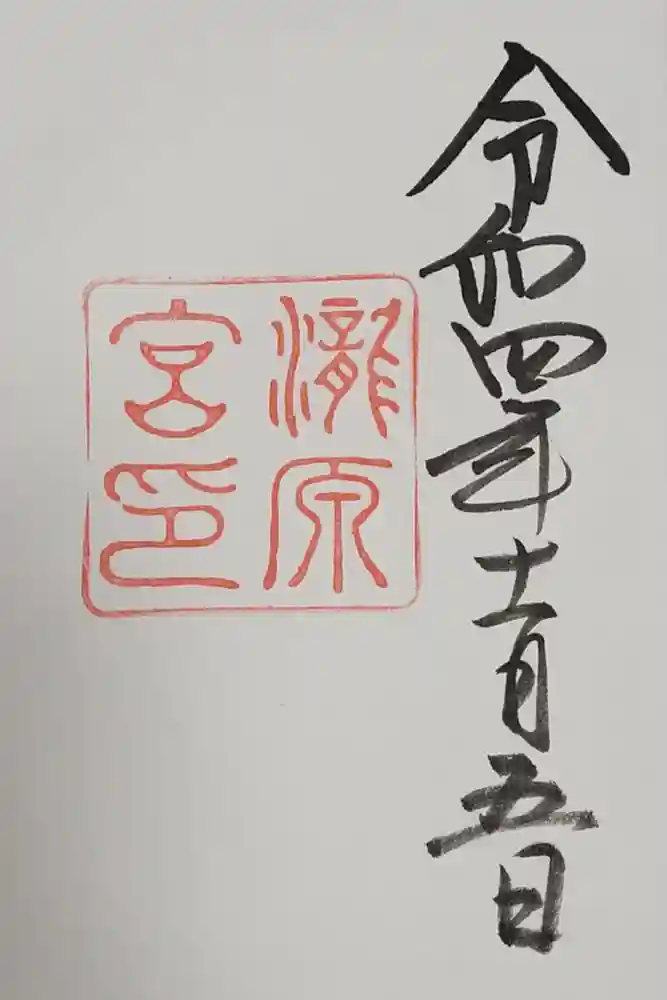 令和四年十一月五日
瀧原
宮印